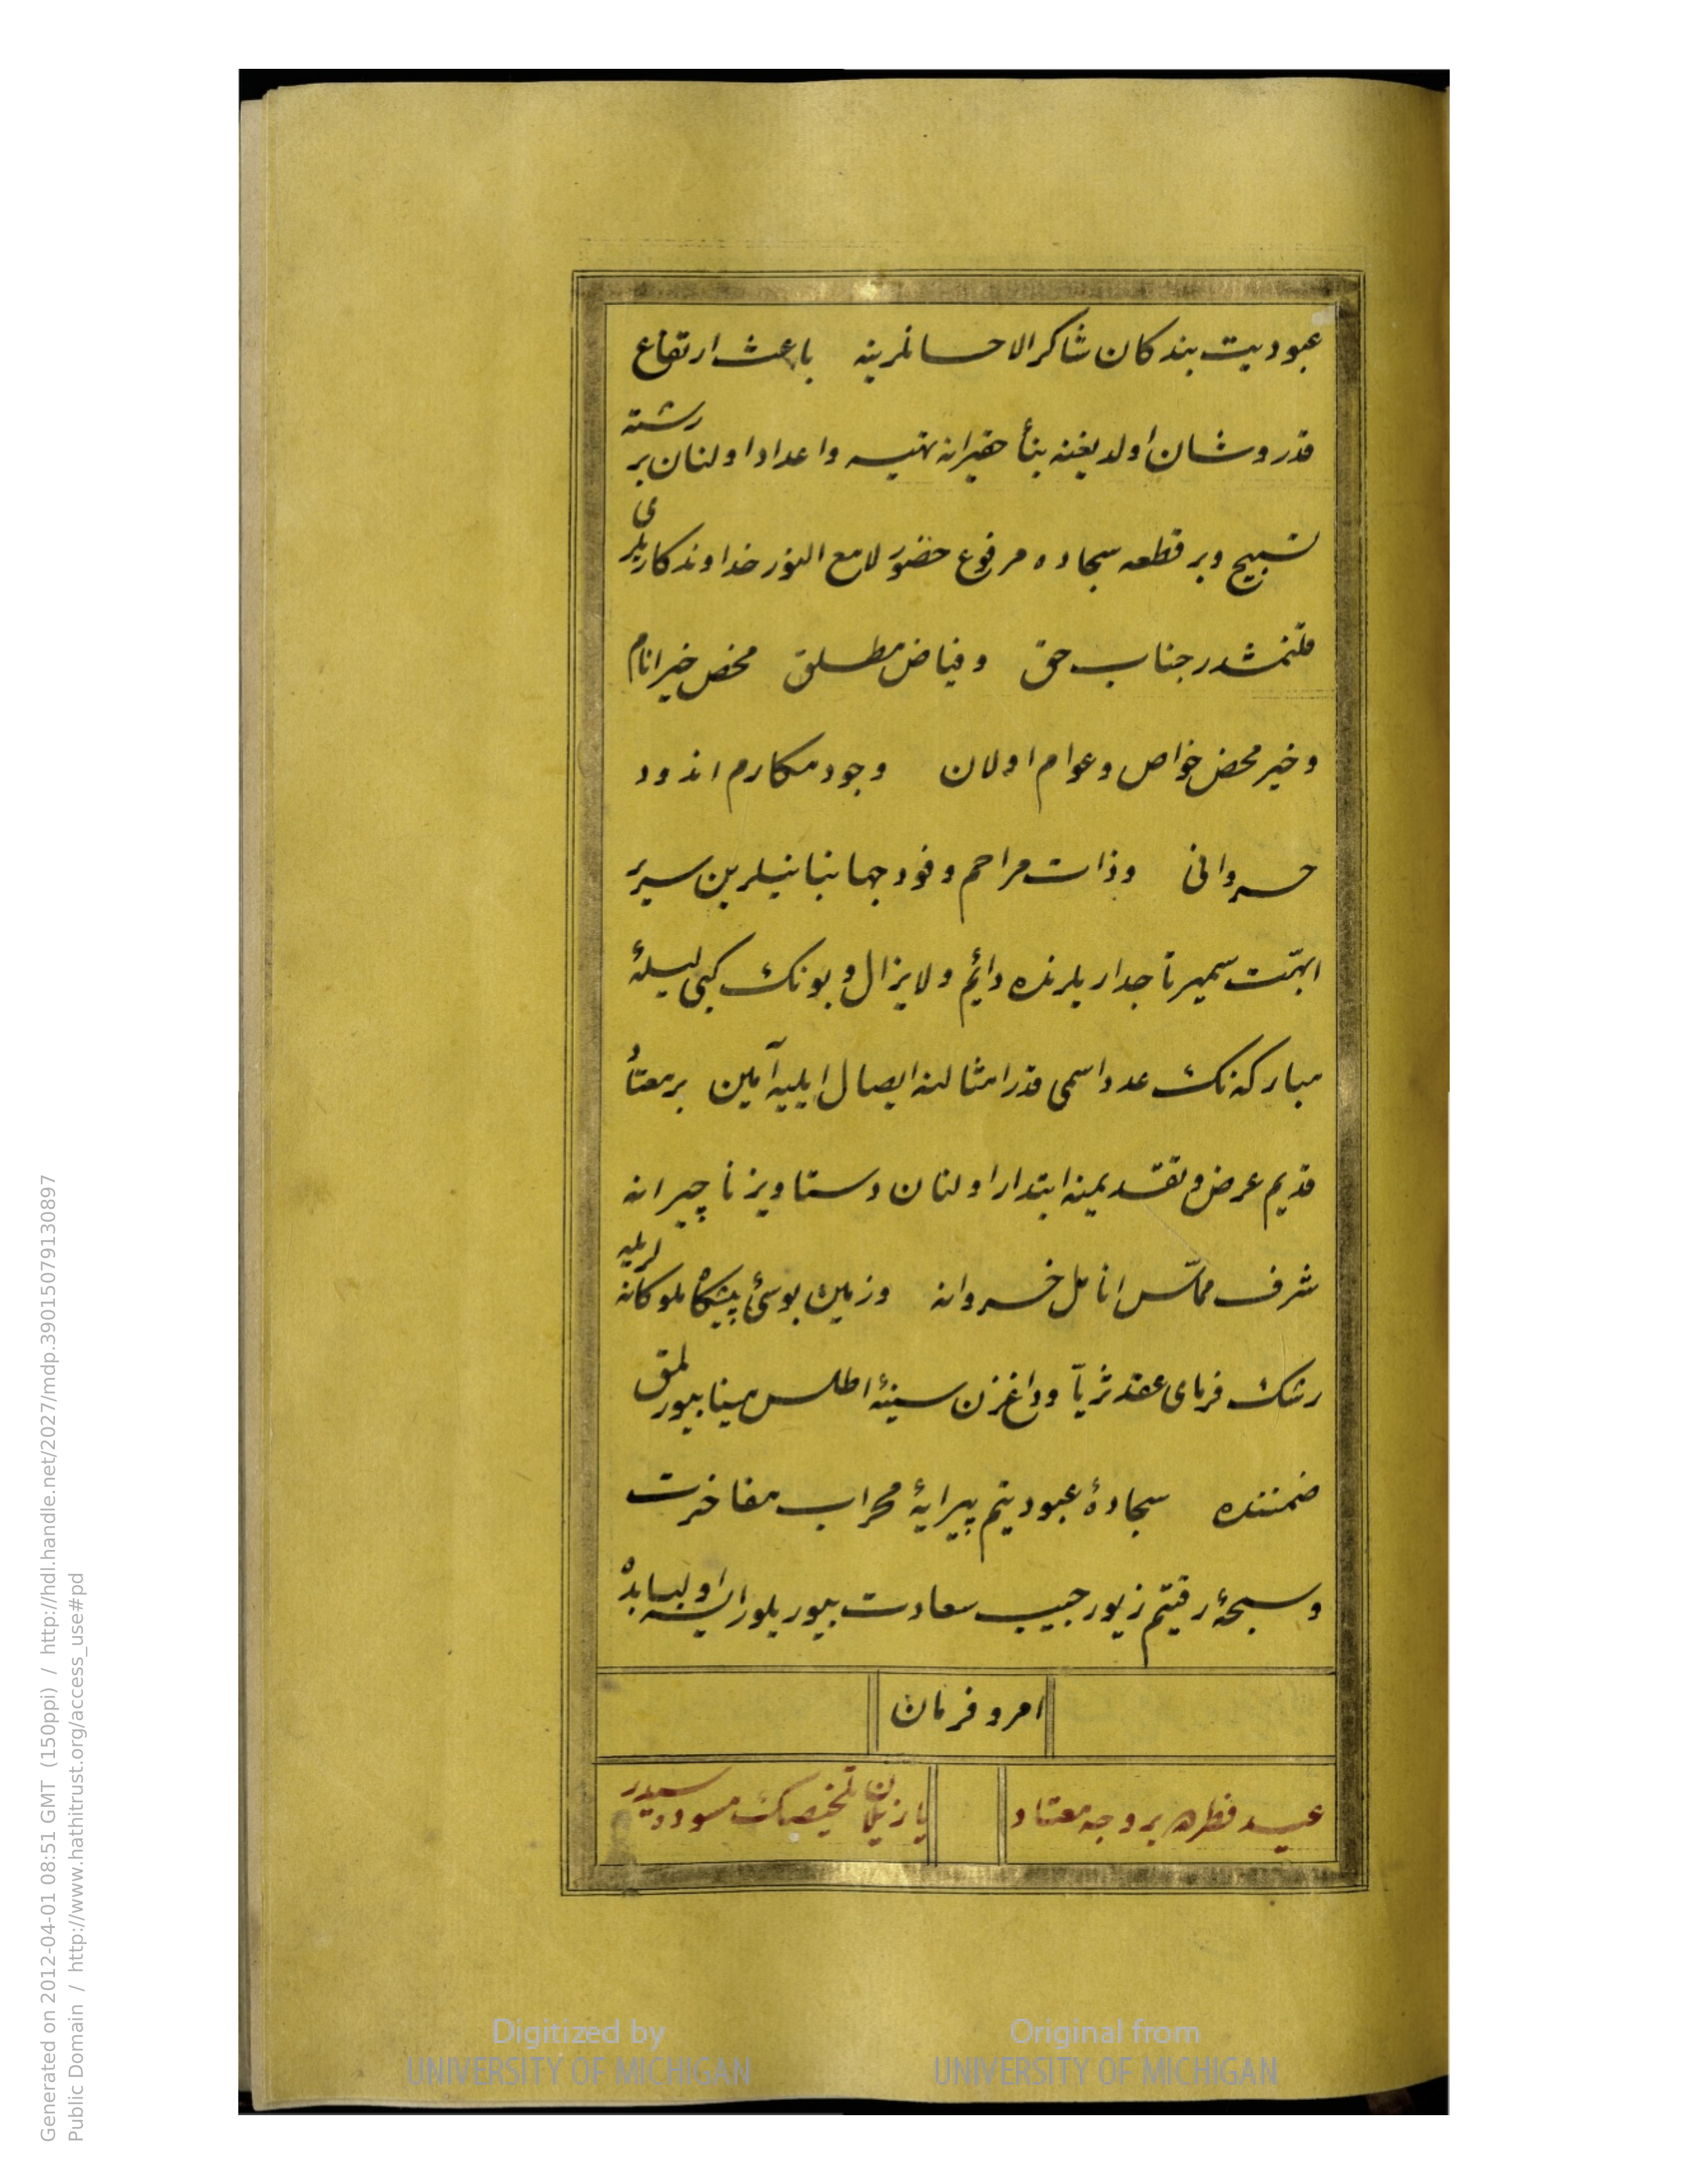 عبودیت بندکان شاکر الاحسانلرینه باعث ارتفاع
قدر و شان اولدیغنه بناً حقیرانه تهیه و اعداد اولنان بر رشته
تسبیح و بر قطعه سجاده مرفوع حضور لامع النور خداوندکاریلری
قلنمشدر جناب حق و فیاض مطلق محض خیر انام
و خیر محض خواص و عوام اولان وجود مکارم اندود
خسروانی و ذات مراحم وفود جهانبانیلرین سریر
ابهت سمیر تاجداریلرنده دائم و لایزال و بونك کبی لیلۀ
مبارکه نك عدد اسمی قدر امثالنه ایصال ایلیه آمین بر معتاد
قدیم عرض و تقدیمنه ابتدار اولنان دستاویز ناچیرانه
شرف مماس انامل خسروانه و زمین بوسئ پیشکاه ملوکانه لریله
رشك فرمای عقد ثریا و داغزن سینۀ اطلس مینا بیورلمق
ضمننده سجادۀ عبودیتم پیرایۀ محراب مفاخرت
و سبحۀ رقیتم زیور جیب سعادت بیوریلور ایسه اولبابده
امر و فرمان
عید فطره بر وجه معتاد
یازیلان تلخیصك مسوده سیدر
Generated on 2012-04-01 08:51 GMT (150ppi) / http://hdl.handle.net/2027/mdp.39015079130897
Public Domain / http://www.hathitrust.org/access_use#pd
Digitized by
UNIVERSITY OF MICHIGAN
Original from
UNIVERSITY OF MICHIGAN